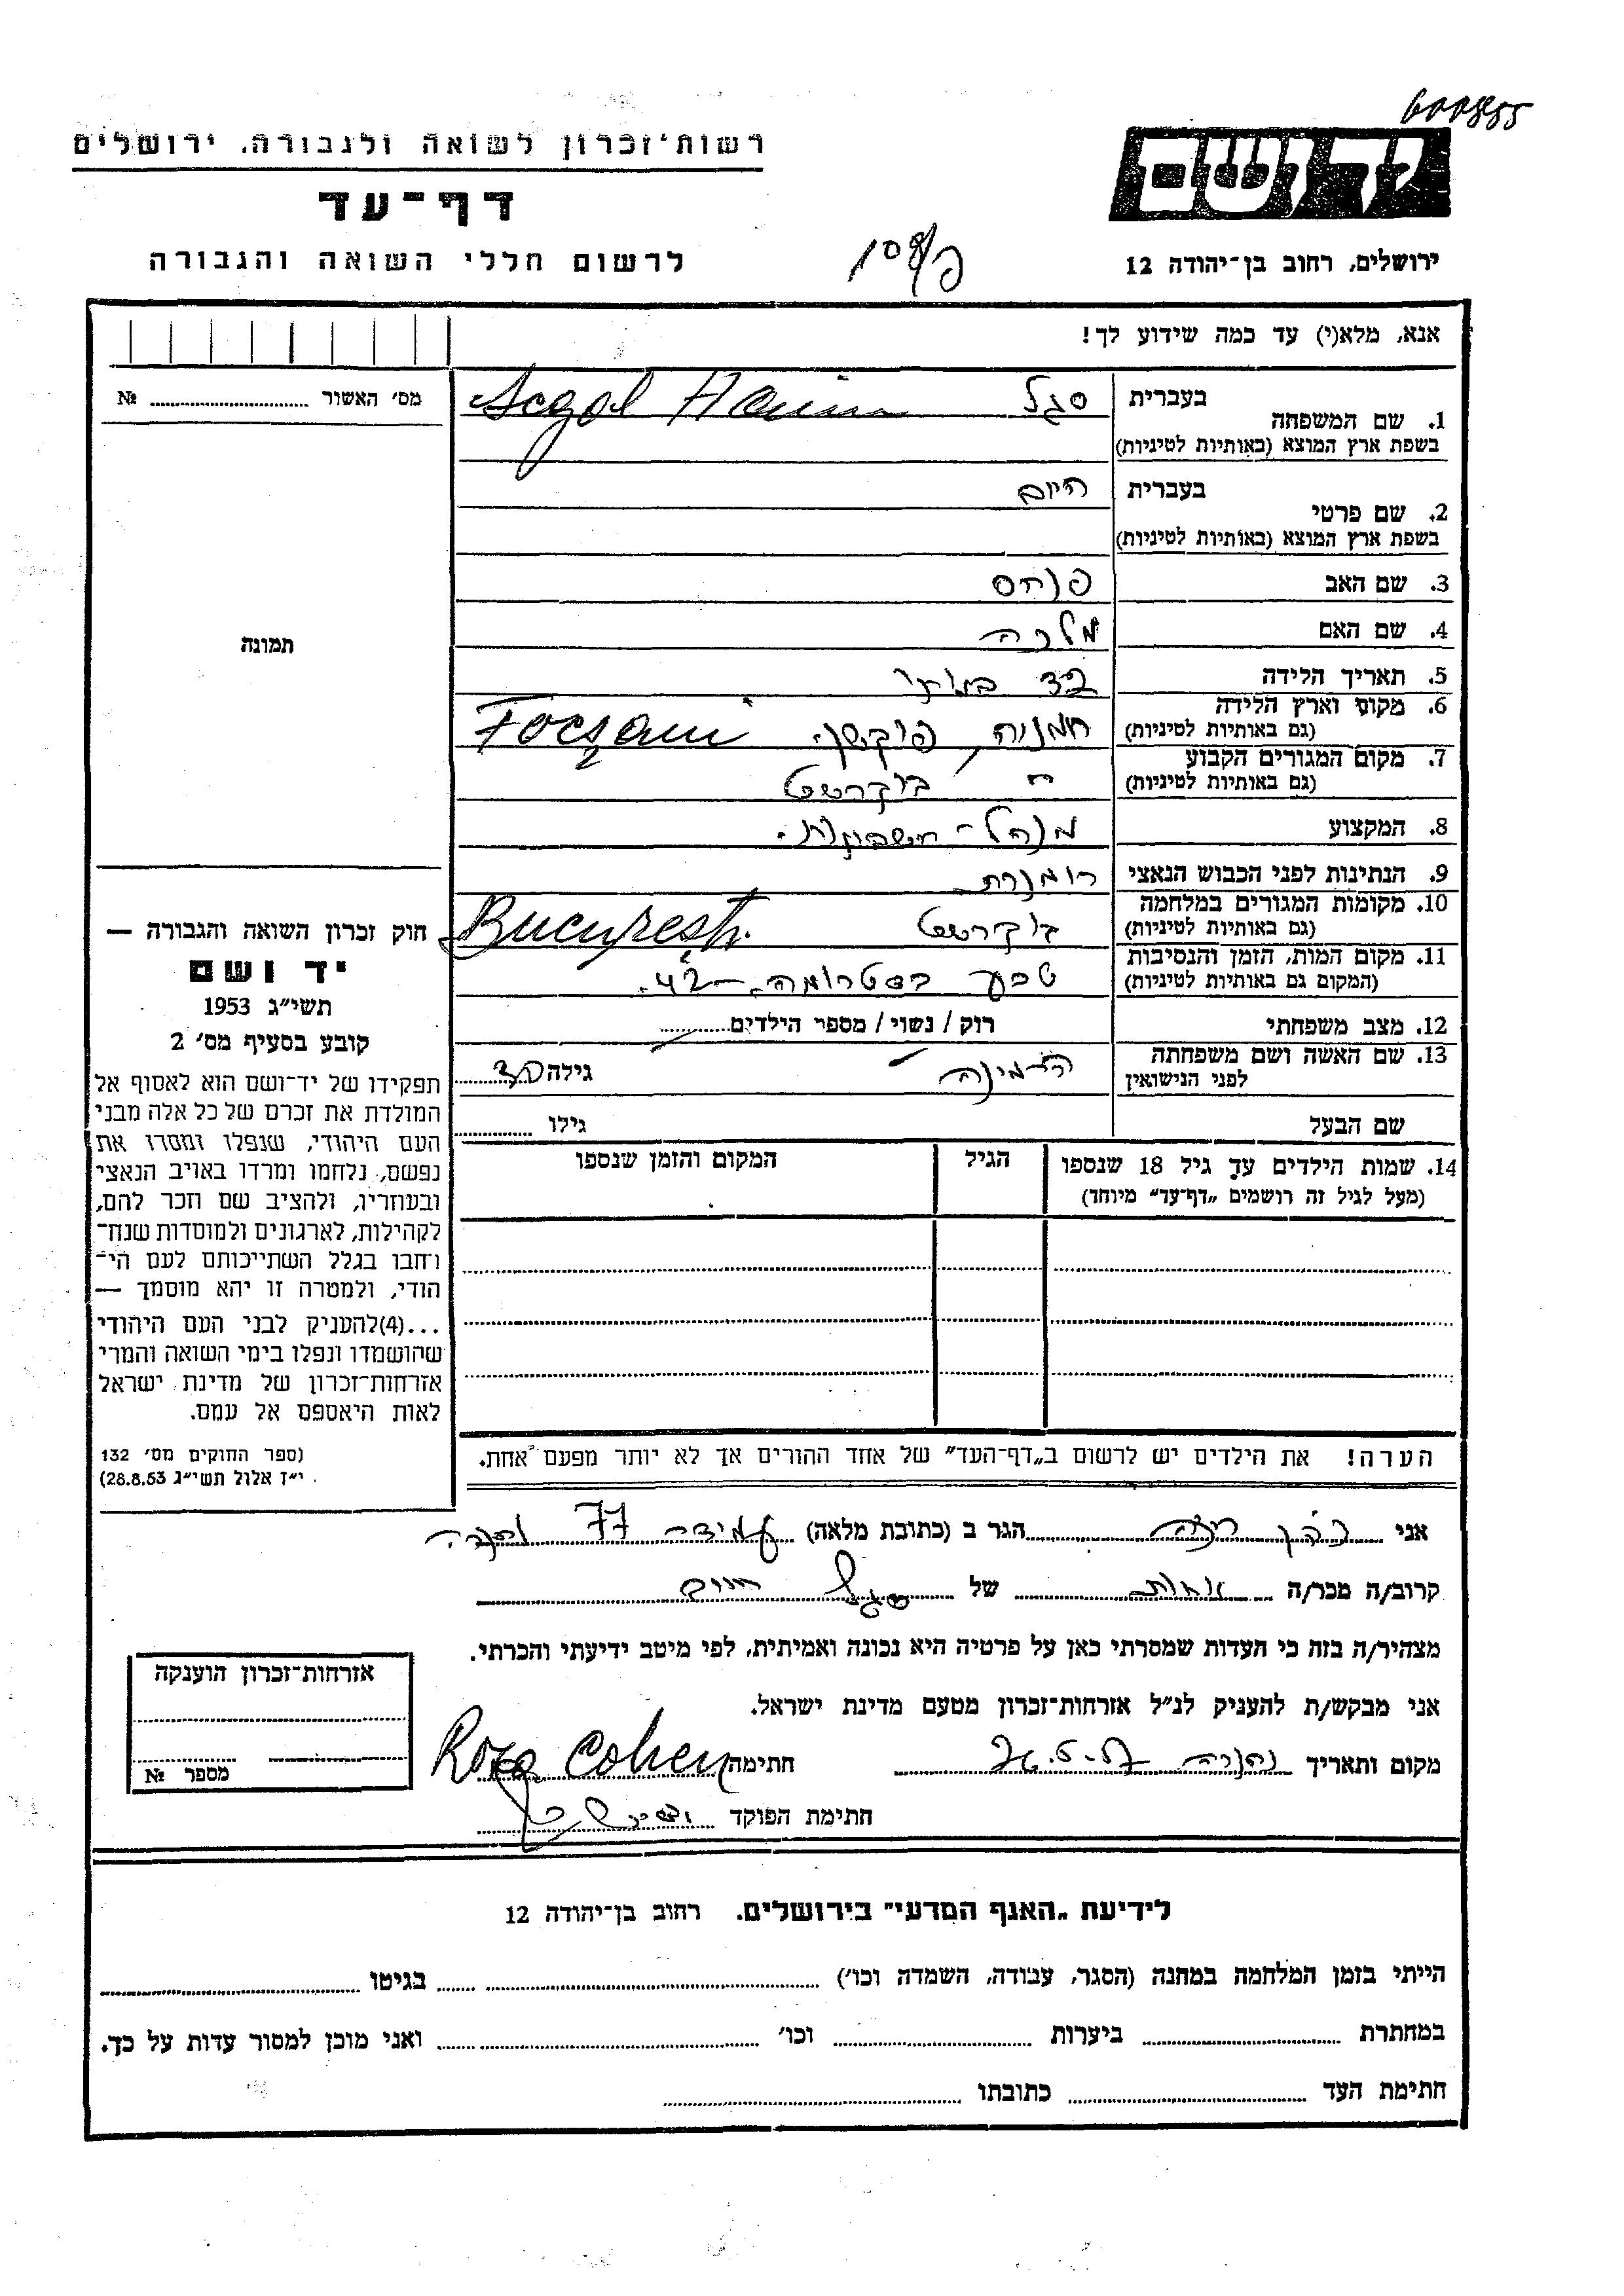 600885
רשות־זכרון לשואה ולגבורה, ירושלים
יד ושם
דף־עד
לרשום חללי השואה והגבורה
ירושלים, רחוב בן־יהודה 12
אנא, מלא(י) עד כמה שידוע לך!
מס׳ האשור № 
1. שם המשפחה בעברית סגל Segal Haim
בשפת ארץ המוצא (באותיות לטיניות)
2. שם פרטי בעברית חיים
בשפת ארץ המוצא (באותיות לטיניות)
3. שם האב פנחס
4. שם האם מלכה
5. תאריך הלידה
6. מקום וארץ הלידה פוקשן Focşani
(גם באותיות לטיניות)
7. מקום המגורים הקבוע בוקרשט
(גם באותיות לטיניות)
8. המקצוע מנהל - חשבונות.
9. הנתינות לפני הכבוש הנאצי רומנית
10. מקומות המגורים במלחמה בוקרשט Bucureşti
(גם באותיות לטיניות)
11. מקום המות, הזמן והנסיבות טבע בסטרומה - 42.
(המקום גם באותיות לטיניות)
12. מצב משפחתי רוק / נשוי / מספר הילדים
13. שם האשה ושם משפחתה גילה 30
לפני הנישואין
שם הבעל גילו
14. שמות הילדים עד גיל 18 שנספו הגיל המקום והזמן שנספו
(מעל לגיל זה רושמים „דף־עד” מיוחד)
הערה! את הילדים יש לרשום ב„דף־העד” של אחד ההורים אך לא יותר מפעם אחת.
תמונה
חוק זכרון השואה והגבורה —
יד ושם
תשי״ג 1953
קובע בסעיף מס׳ 2
תפקידו של יד־ושם הוא לאסוף אל
המולדת את זכרם של כל אלה מבני
העם היהודי, שנפלו ומסרו את
נפשם, נלחמו ומרדו באויב הנאצי
ובעוזריו, ולהציב שם וזכר להם,
לקהילות, לארגונים ולמוסדות שנח־
רחבו בגלל השתייכותם לעם הי־
הודי, ולמטרה זו יהא מוסמך —
...(4)להעניק לבני העם היהודי
שהושמדו ונפלו בימי השואה והמרי
אזרחות־זכרון של מדינת ישראל
לאות היאספם אל עמם.
(ספר החוקים מס׳ 132
י״ז אלול תשי״ג 28.8.53)
אני כהן רוזה הגר ב (כתובת מלאה) עמידר 77
קרוב/ה מכר/ה אחות של סגל חיים
מצהיר/ה בזה כי העדות שמסרתי כאן על פרטיה היא נכונה ואמיתית, לפי מיטב ידיעתי והכרתי.
אני מבקש/ת להעניק לנ״ל אזרחות־זכרון מטעם מדינת ישראל.
מקום ותאריך נהריה חתימה Roza Cohen
חתימת הפוקד
אזרחות־זכרון הוענקה
מספר №
לידיעת „האגף המדעי” בירושלים. רחוב בן־יהודה 12
הייתי בזמן המלחמה במחנה (הסגר, עבודה, השמדה וכו׳) בגיטו
במחתרת ביערות וכו׳ ואני מוכן למסור עדות על כך.
חתימת העד כתובתו